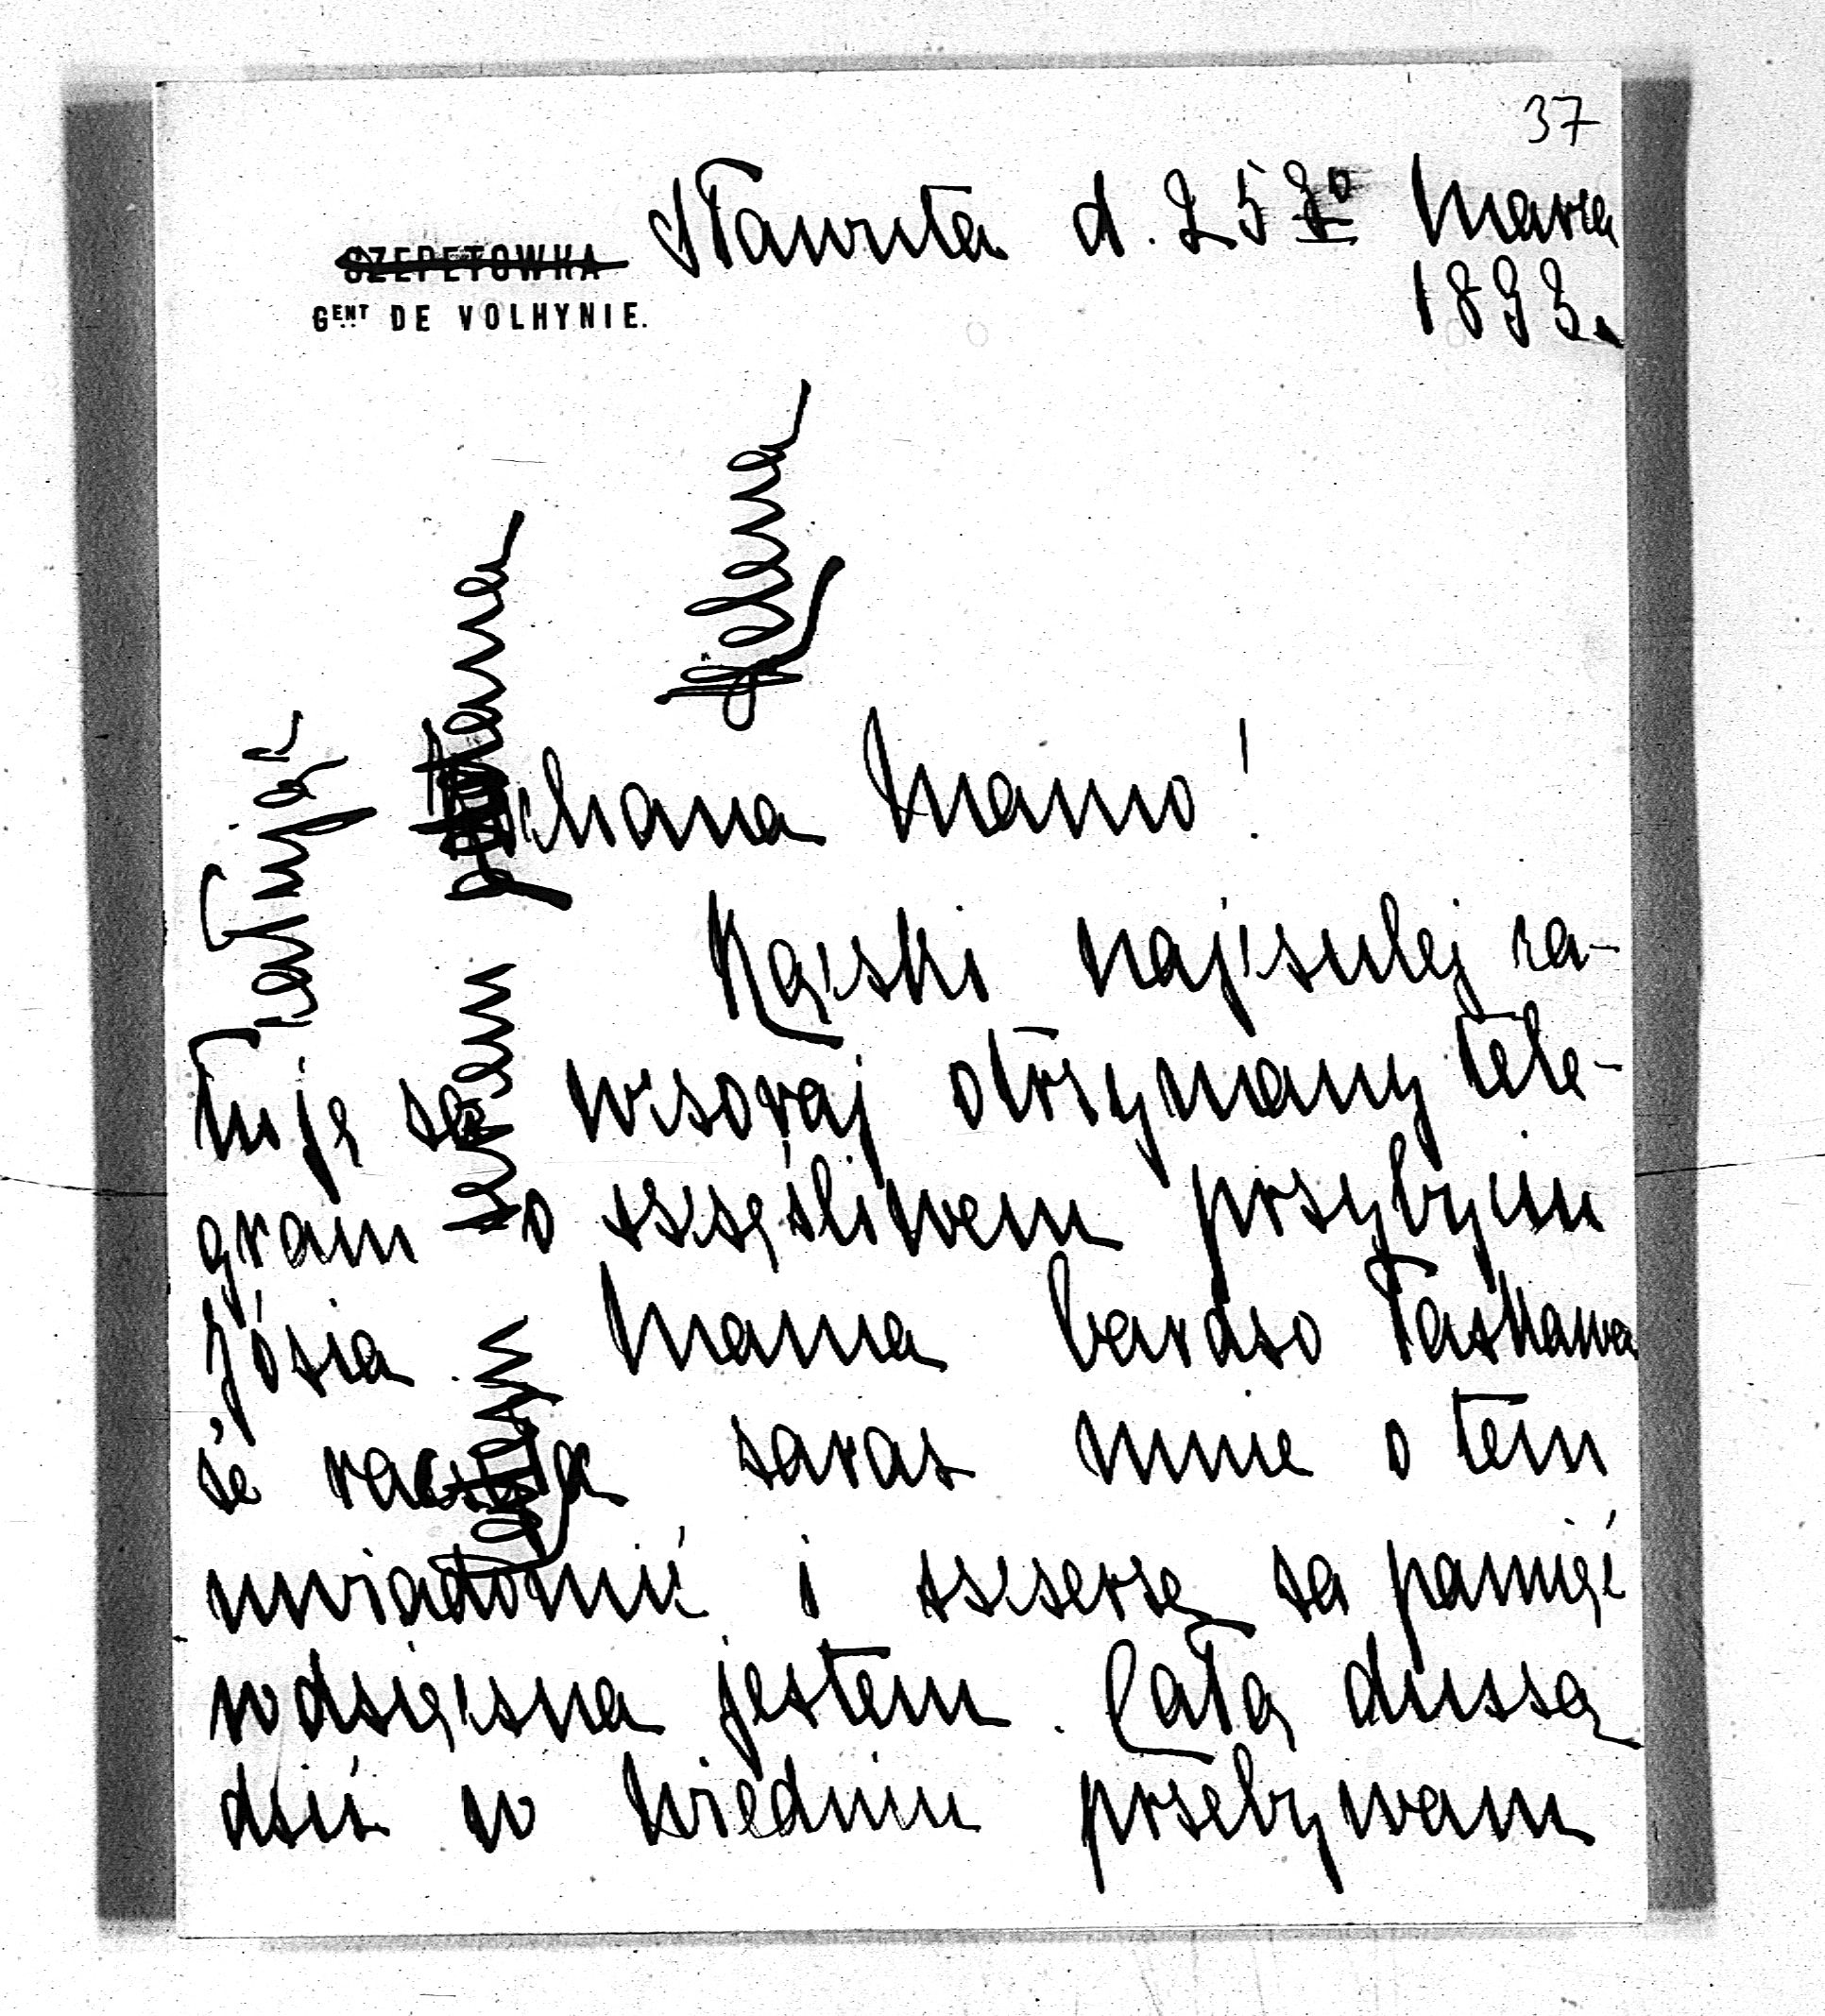 37
Sławuta d. 25go Marca
1893.
SZEPETOWKA
GENT DE VOLHYNIE.
Kochana Mamo!
Rączki najczulej ca-
łuję za wczoraj otrzymany tele-
gram o szczęśliwem przybyciu
Józia. Mama bardzo łaskawa
że raczyła zaraz mnie o tem
uwiadomić i szczerze za pamięć
wdzięczna jestem. Całą duszą
dziś w Wiedniu przebywam
sercem
Helena